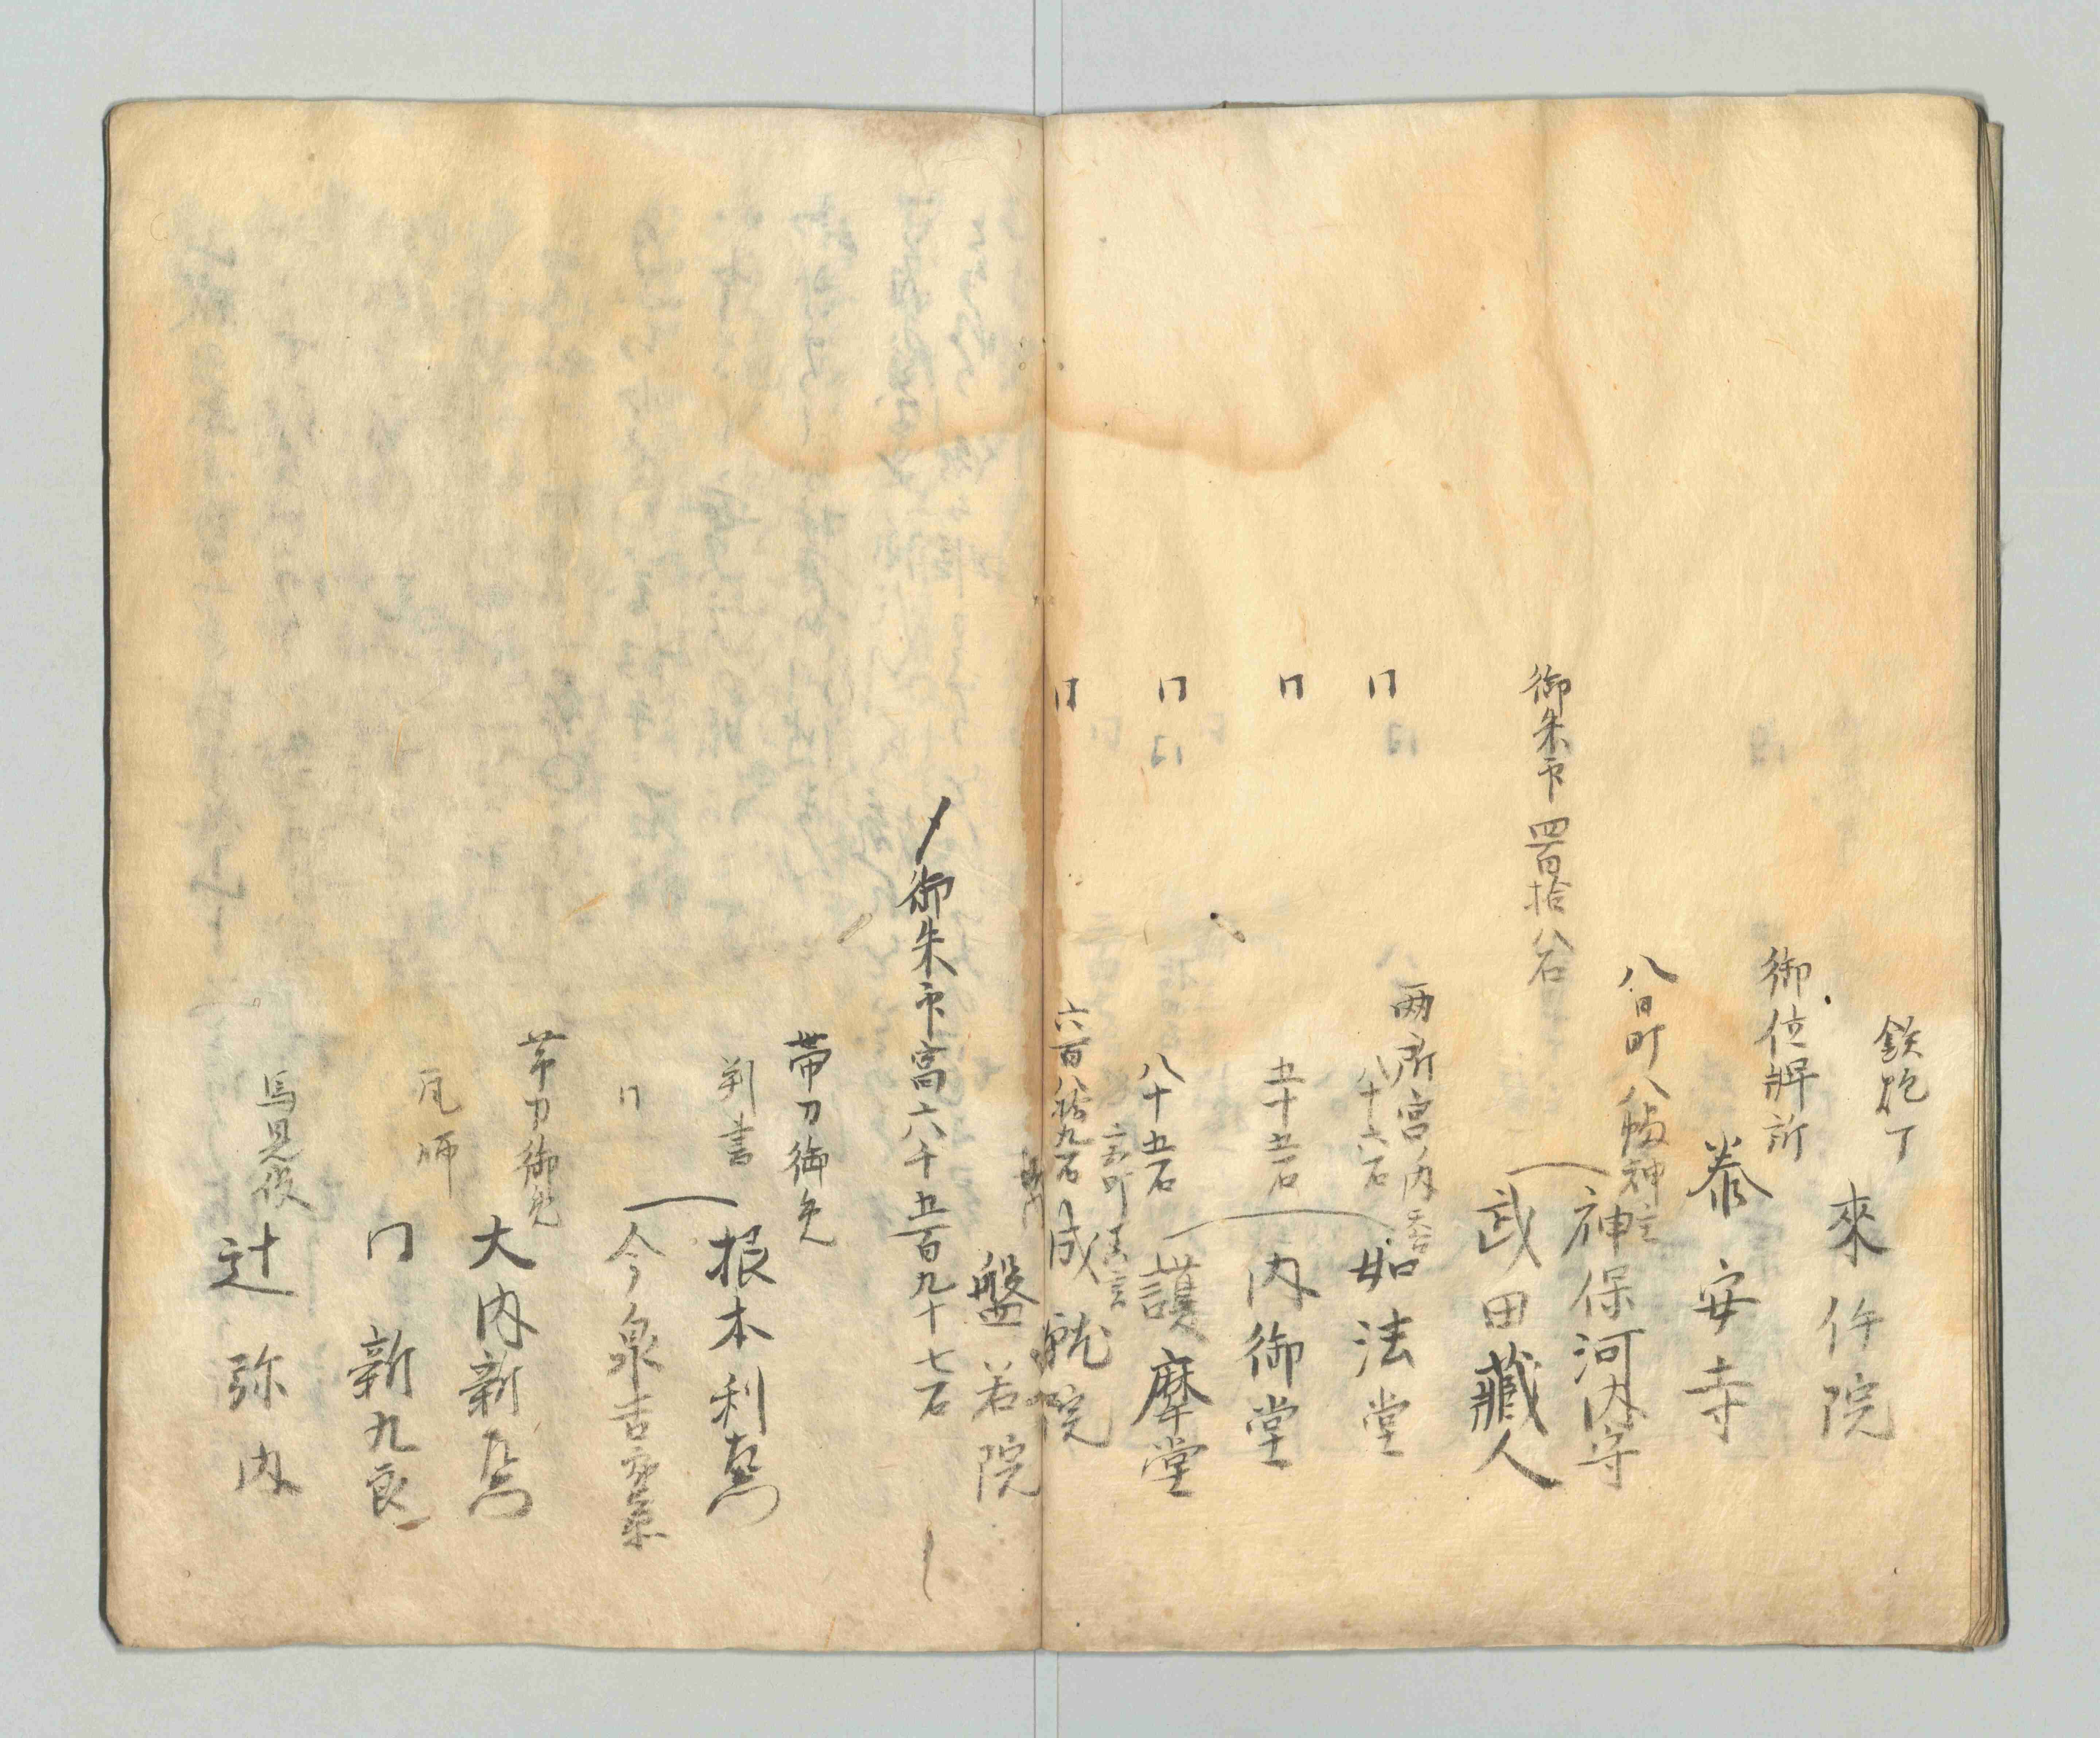 鉄炮丁
來仵院
御位牌所
泰安寺
八日町八幡神主
神保河内守
御朱印四百拾八石
武田藏人
両所宮ノ内
〃八十六石
如法堂
〃五十五石
内御堂
〃八十五石
護摩堂
〃六百八拾九石
成就院
盤若院
〆御朱印高六千五百九十七石
帯刀御免
判書
根本利惣
〃
今泉吉
帯刀御免
大内新
瓦師
〃新九郎
馬見役
辻弥内